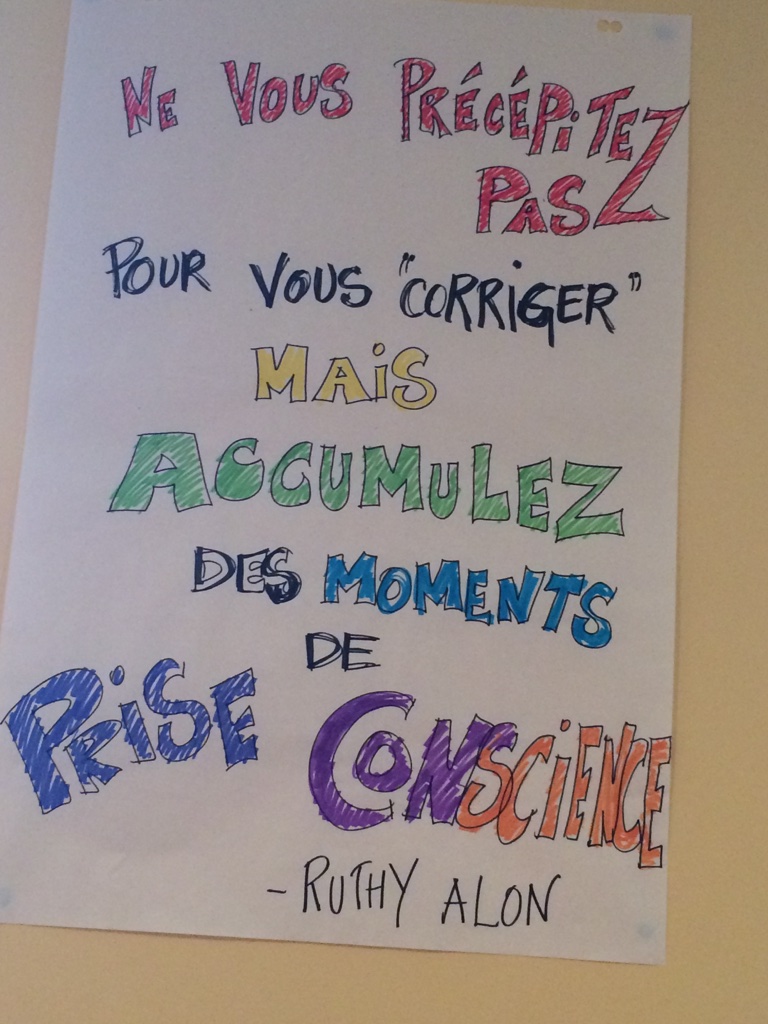 NE VOUS PRÉCÉPITEZ
PAS
POUR VOUS "CORRIGER"
MAIS
ACCUMULEZ
DES MOMENTS
DE
PRISE CONSCIENCE
- RUTHY ALON